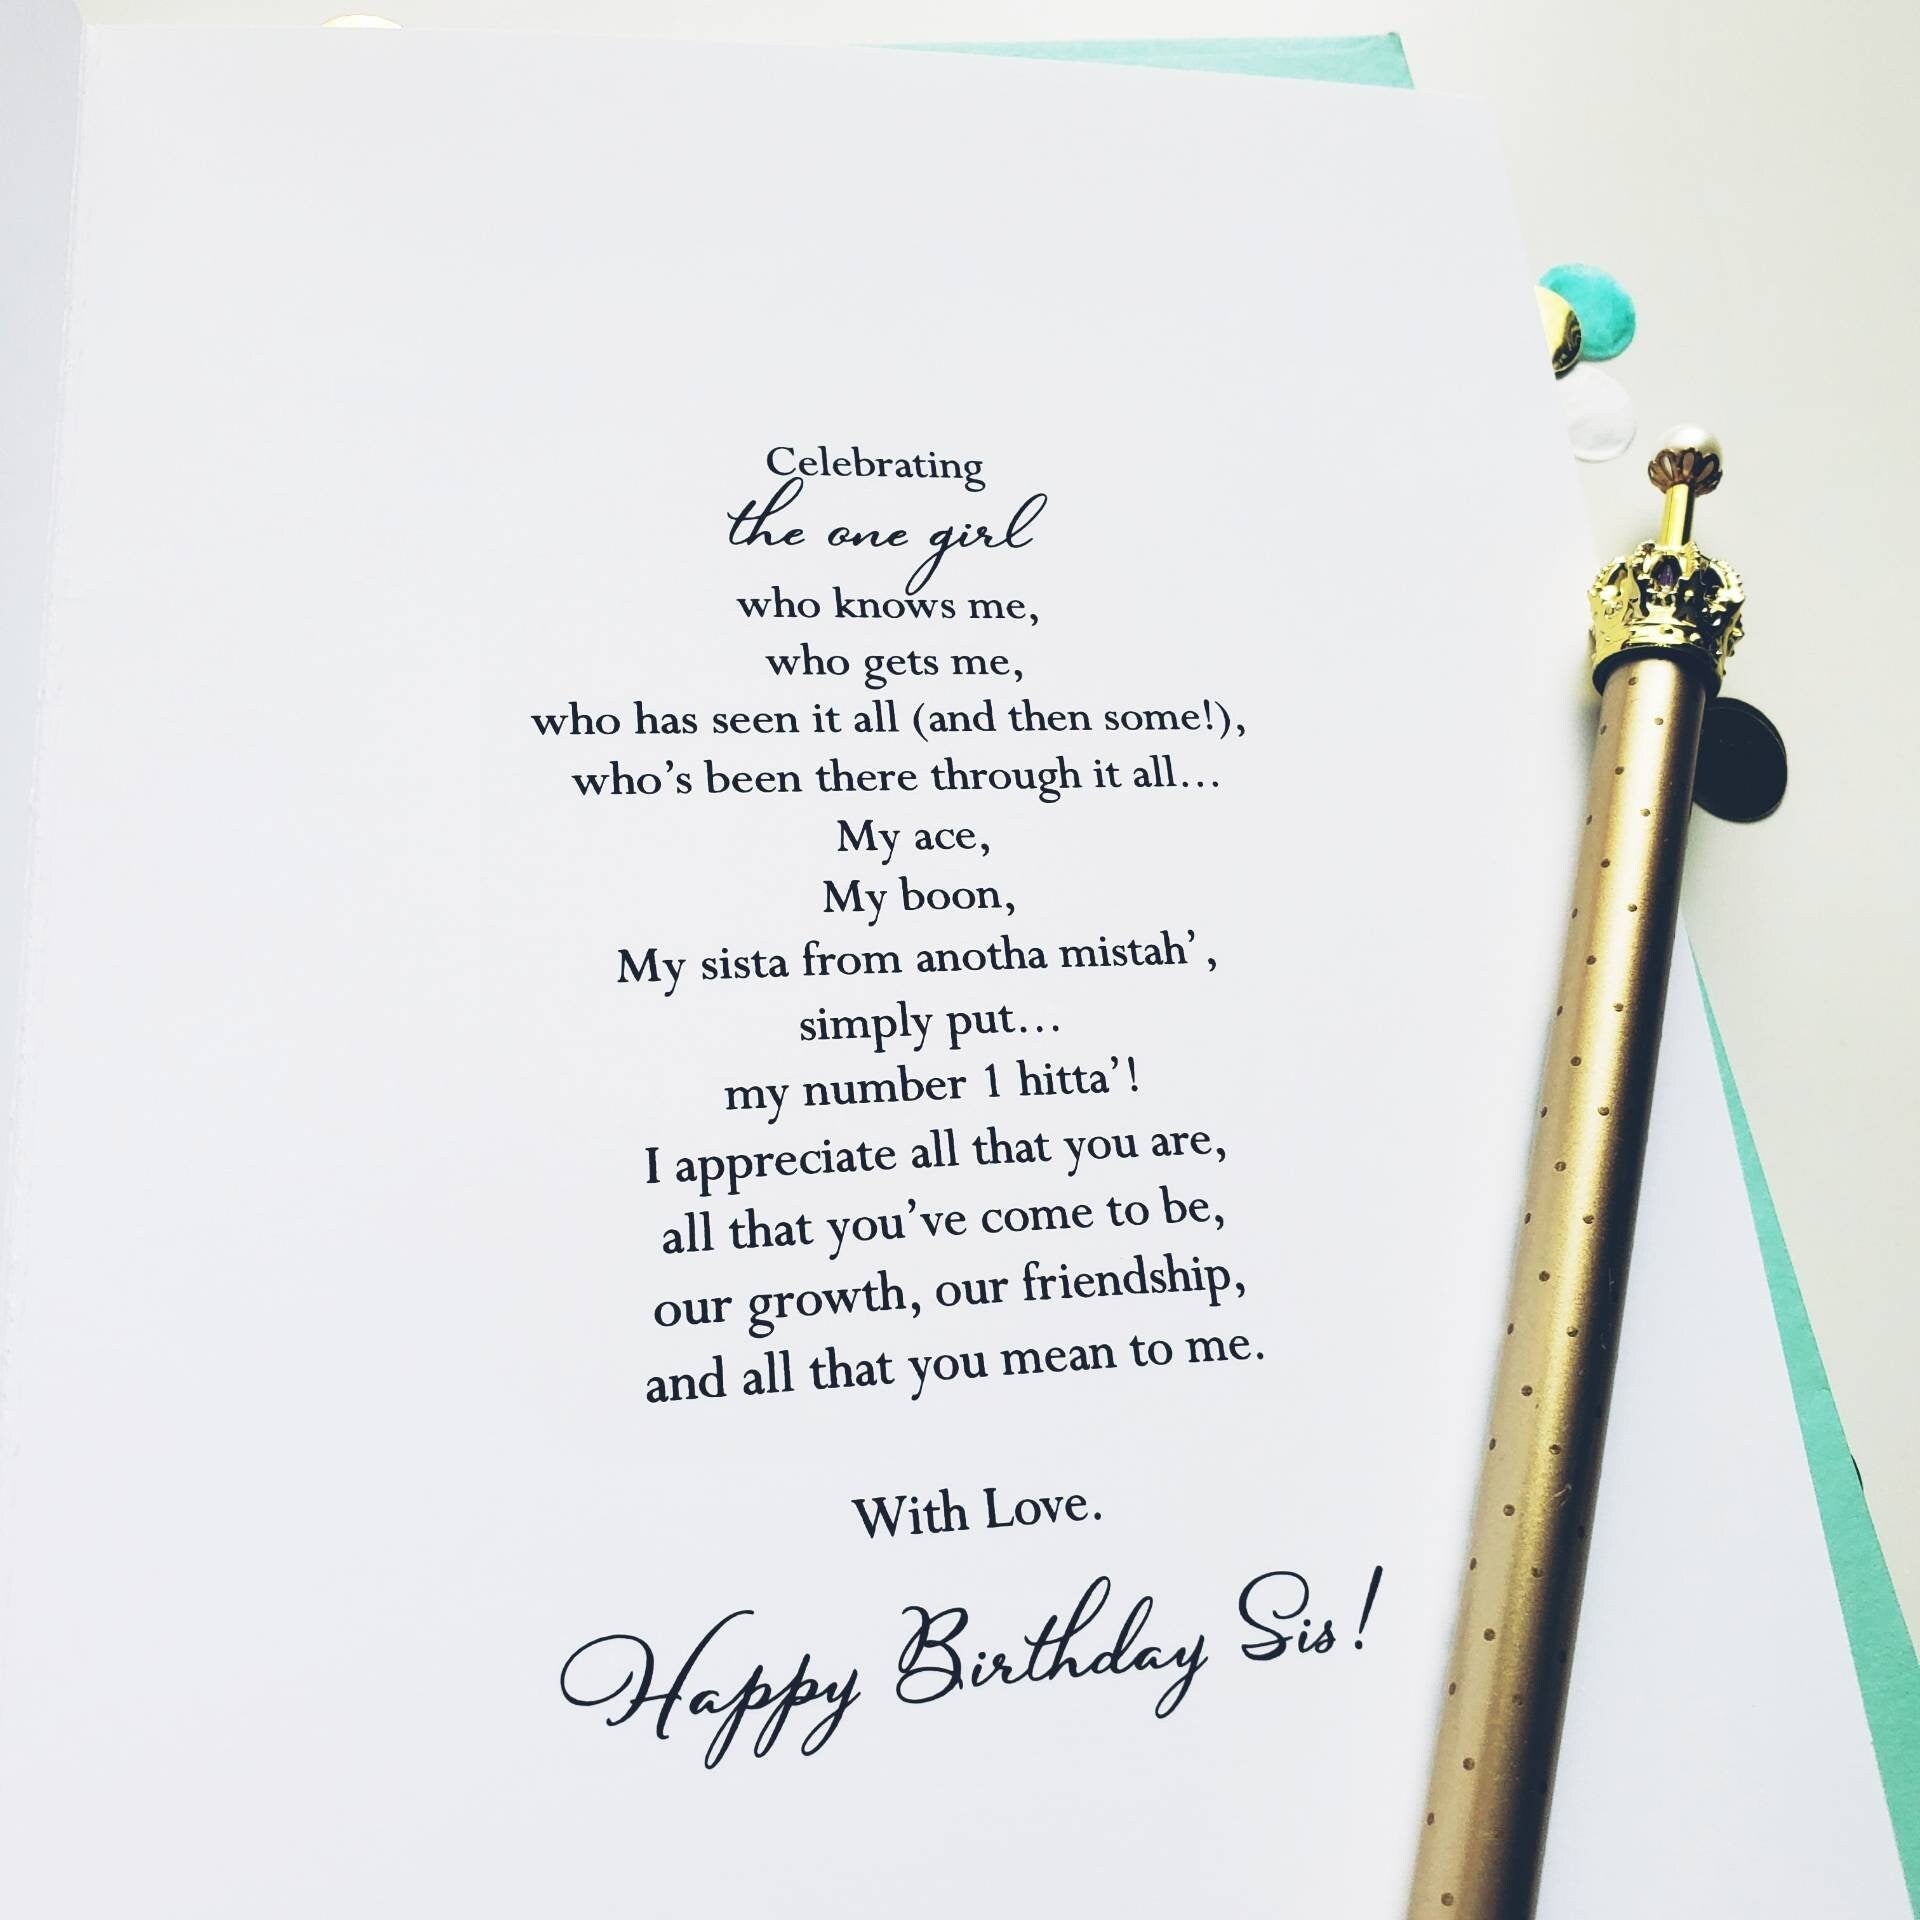 Celebrating
the one girl
who knows me,
who gets me,
who has seen it all (and then some!),
who's been there through it all...
My ace,
My boon,
My sista from anotha mistah',
simply put...
my number 1 hitta'!
I appreciate all that you are,
all that you've come to be,
our growth, our friendship,
and all that you mean to me.
With Love.
Happy Birthday Sis!